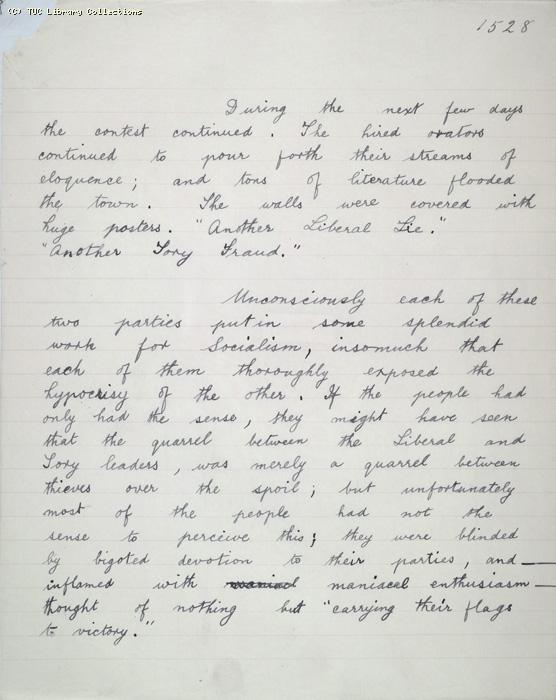 (C) TUC Library Collections
1528
During the next few days
the contest continued. The hired orators
continued to pour forth their streams of
eloquence; and tons of literature flooded
the town. The walls were covered with
huge posters. "Another Liberal Lie."
"Another Tory Fraud."
Unconsciously each of these
two parties put in some splendid
work for Socialism, insomuch that
each of them thoroughly exposed the
hypocrisy of the other. If the people had
only had the sense, they might have seen
that the quarrel between the Liberal and
Tory leaders, was merely a quarrel between
thieves over the spoil; but unfortunately
most of the people had not the
sense to perceive this; they were blinded
by bigoted devotion to their parties, and —
inflamed with maniacal enthusiasm —
thought of nothing but "carrying their flags
to victory."